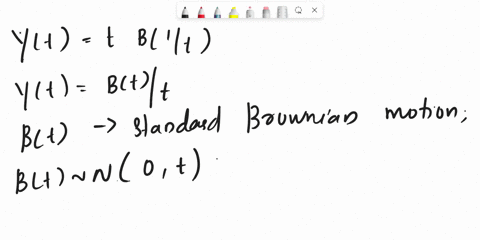 Y(t) = t B(1/t)
Y(t) = B(t)/t
B(t) -> standard Brownian motion;
B(t) ~ N(0,t)